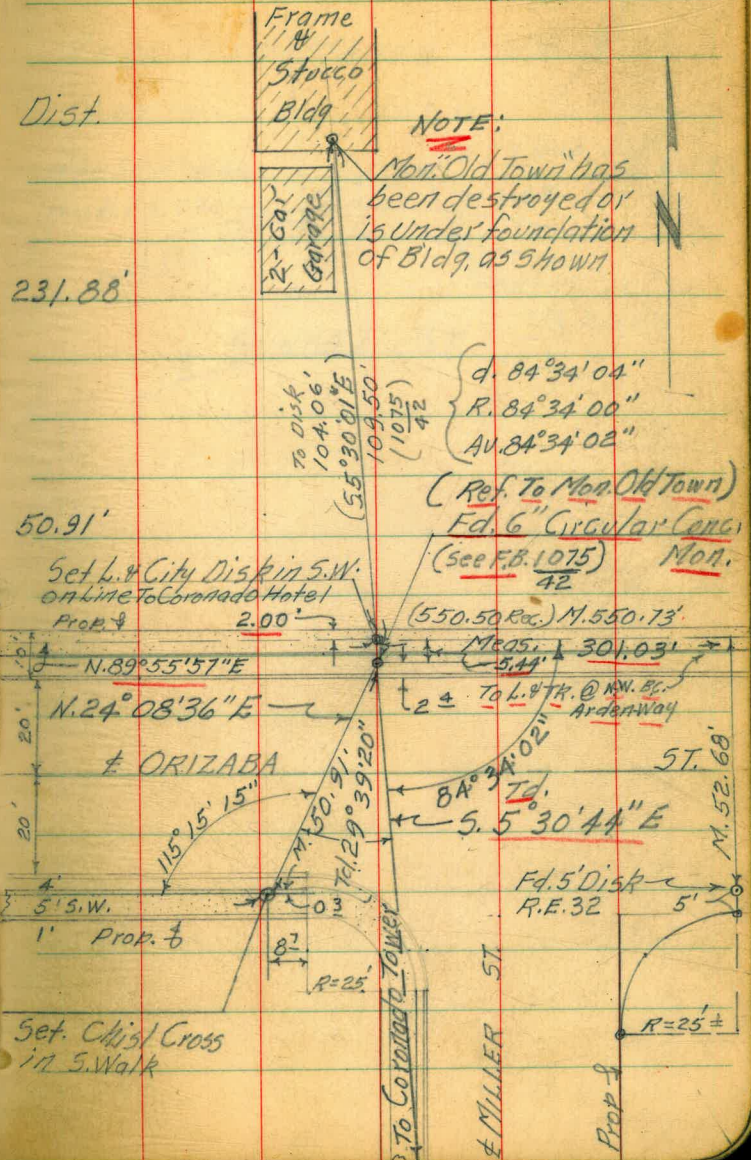 Frame
&
Stucco
Bldg
Dist.
NOTE:
Mon. "Old Town" has
been destroyed or
is under foundation
of Bldg. as shown
2-Car
Garage
N
231.88'
To Disk
104.06'
(S5°30'01"E)
109.50'
(1075)
42
d. 84°34'04"
R. 84°34'00"
Av. 84°34'02"
(Ref. To Mon. Old Town)
50.91'
Fd. 6" Circular Conc.
(see F.B. 1075) Mon.
42
Set L. & City Disk in S.W.
on Line To Coronado Hotel
Prop. ℄ 2.00'
(550.50 Rec.) M. 550.73'
Meas. 301.03'
5.44'
10'
N.89°55'57"E
2 4
To L. & TK. @ N.W. BC.
Arden Way
N.24°08'36"E
20'
℄ ORIZABA
ST.
M. 50.91'
Td. 29°39'20"
84°34'02"
Td.
S. 5°30'44"E
M. 52.68'
115°15'15"
20'
4'
5' S.W.
1' Prop. ℄
0 3
8 7
R=25'
Fd. 5' Disk
R.E. 32
5'
R=25' ±
Set. Chisl Cross
in S. Walk
To Coronado Tower
℄ MILLER ST.
Prop ℄